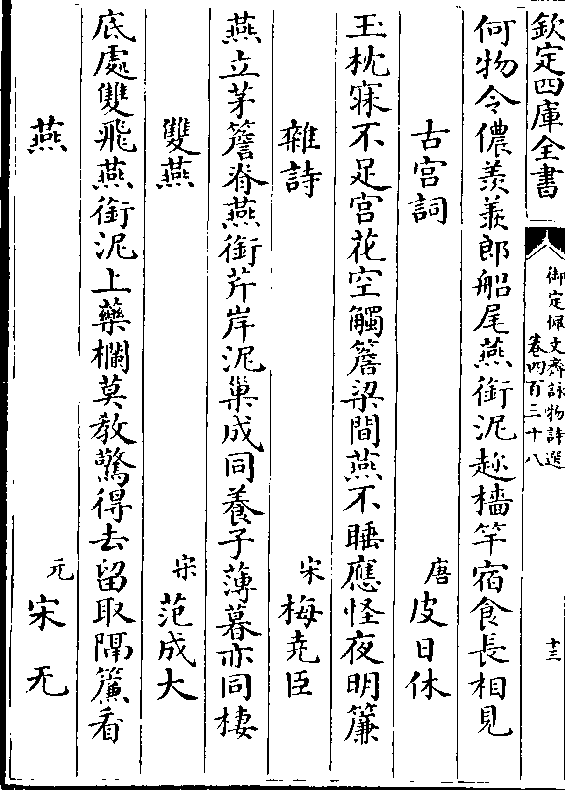 欽定四庫全書
御定佩文齋詠物詩選
卷四百三十八
十三
何物令儂羨羨郎船尾燕銜泥趂檣竿宿食長相見
古宫詞
唐 皮日休
玉枕寐不足宫花空觸簷梁間燕不睡應怪夜明簾
雜詩
宋 梅堯臣
燕立茅簷脊燕銜芹岸泥巢成同養子薄暮亦同棲
雙燕
宋 范成大
底處雙飛燕銜泥上藥欄莫教驚得去留取隔簾看
燕
元 宋无